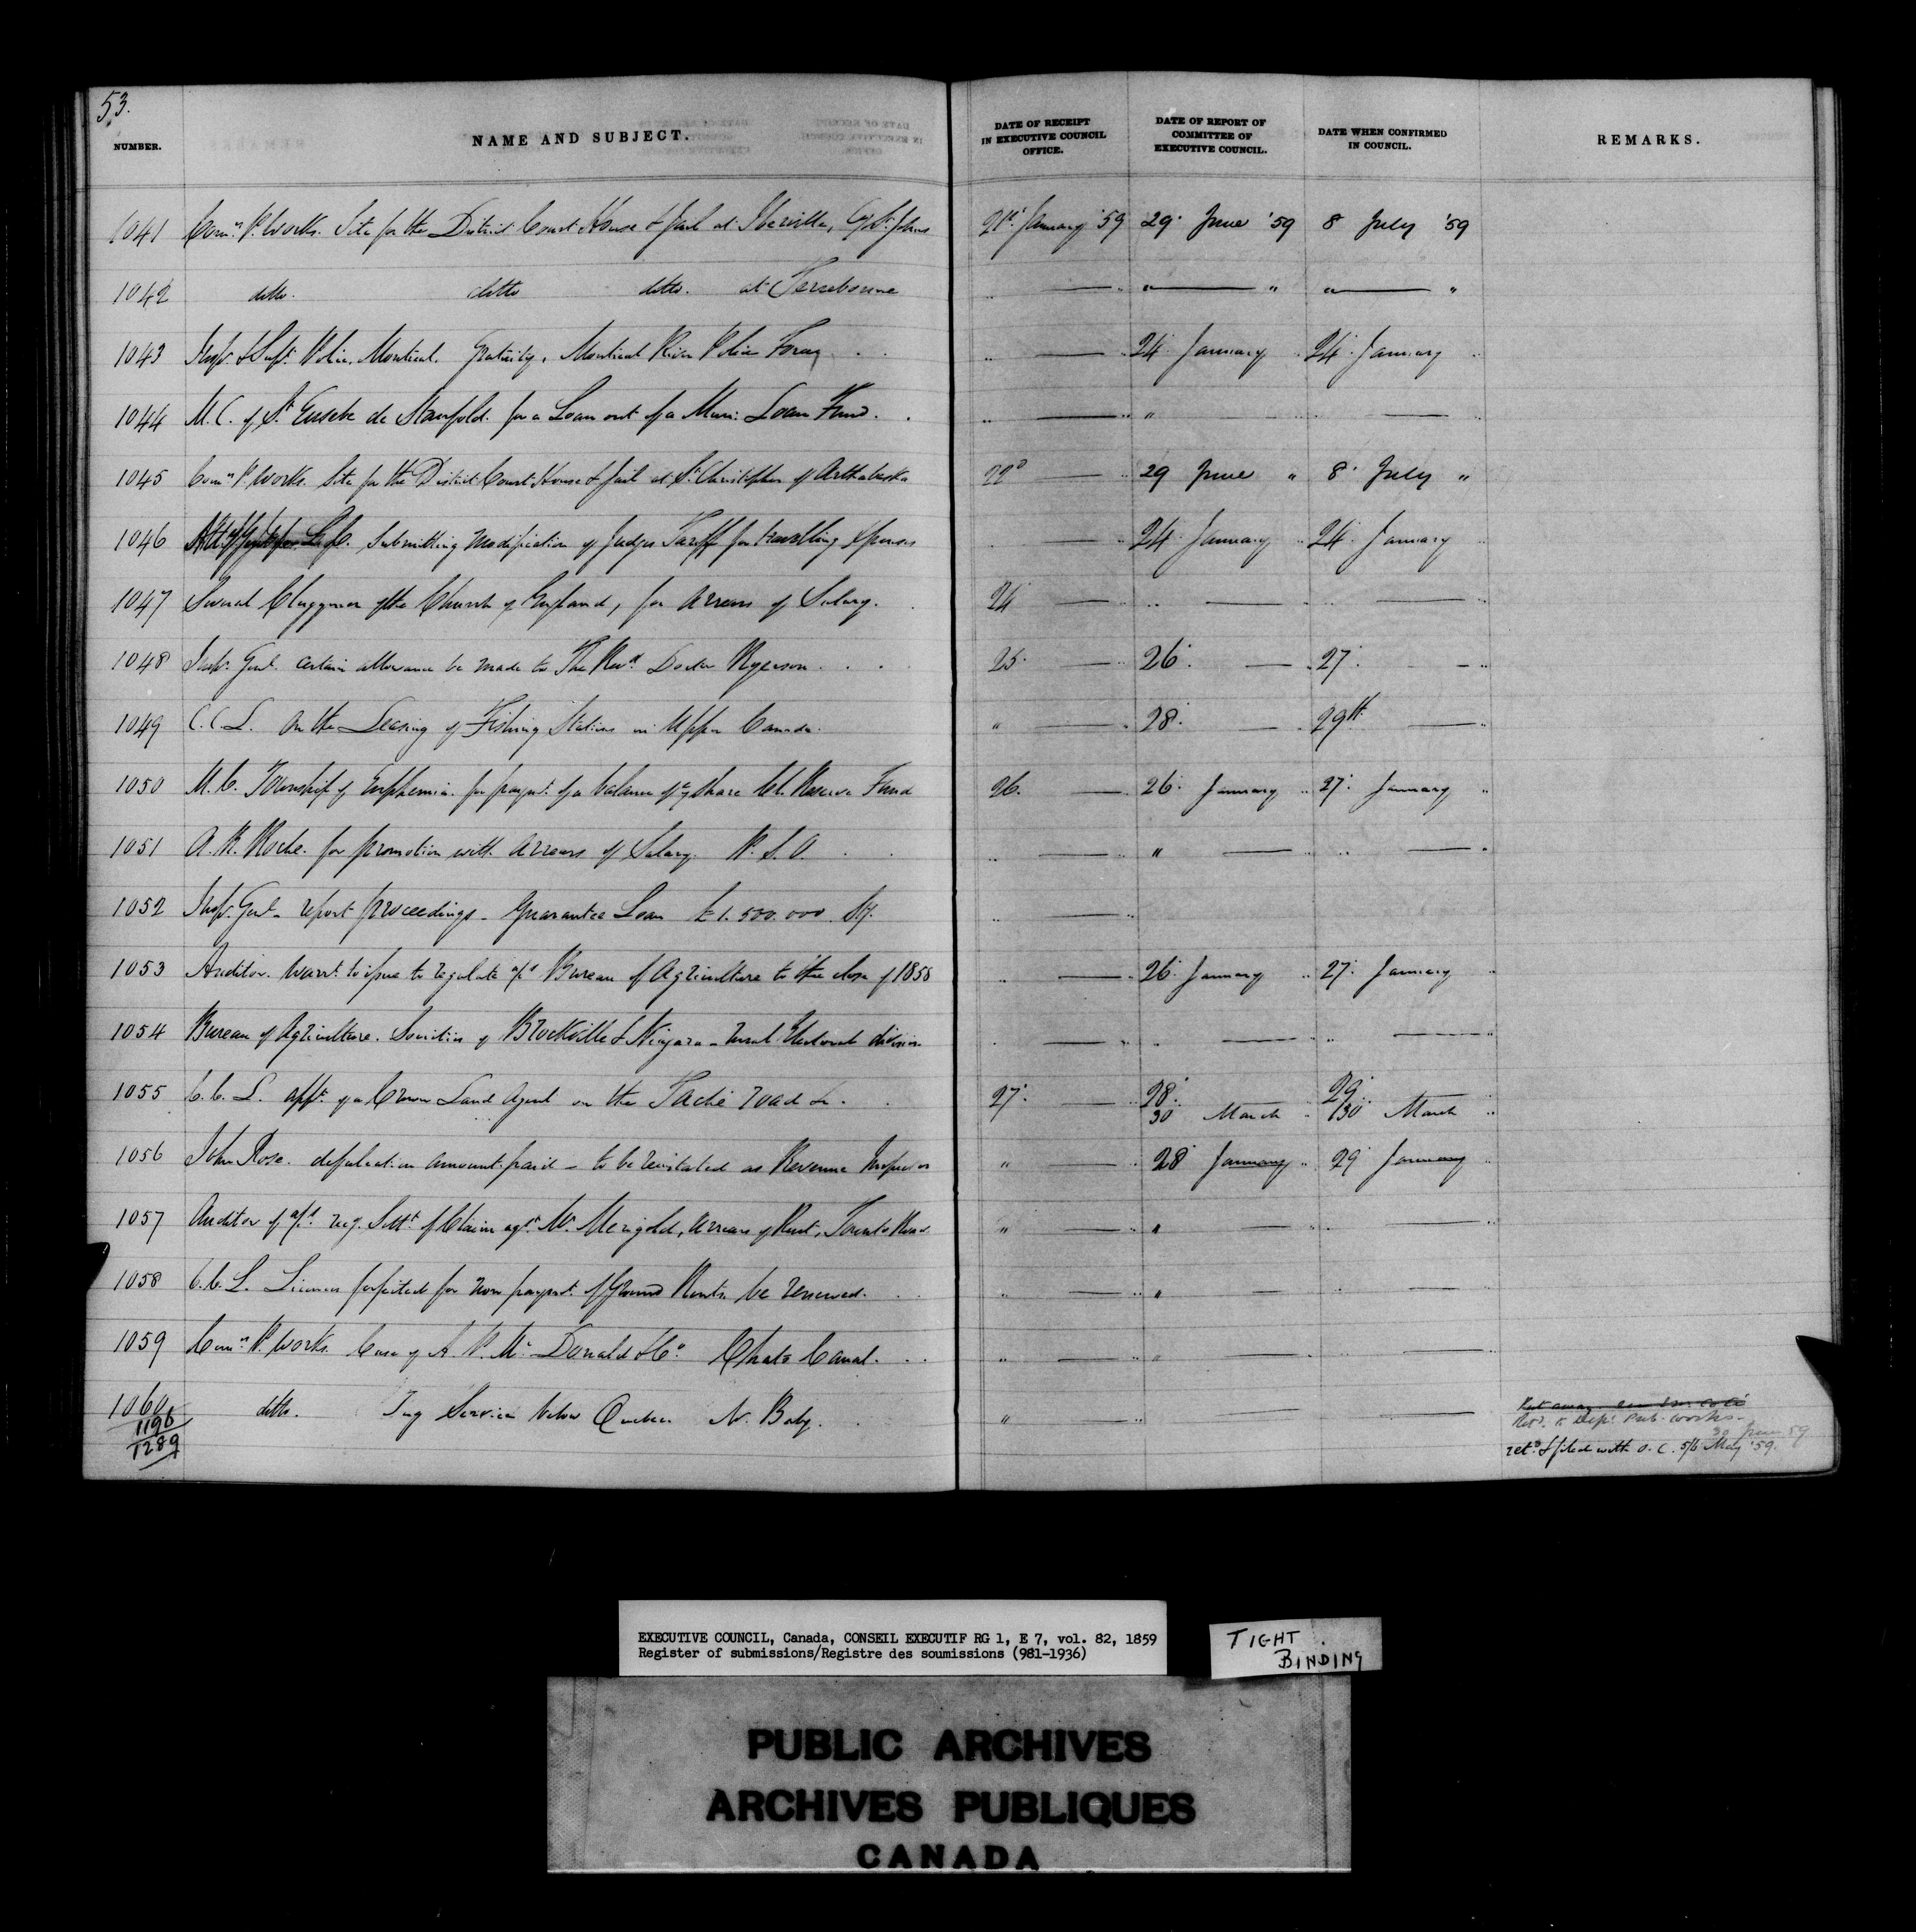 53.
NUMBER. NAME AND SUBJECT. DATE OF RECEIPT IN EXECUTIVE COUNCIL OFFICE. DATE OF REPORT OF COMMITTEE OF EXECUTIVE COUNCIL. DATE WHEN CONFIRMED IN COUNCIL. REMARKS.
1041 Comr. P. Works. Site for the District Court House & Jail at Iberville, Cy St. Johns 21st January '59 29 June '59 8 July '59
1042 ditto. ditto ditto. at Terrebonne " — " " — " " — "
1043 Insp. & Supt. Police. Montreal. Gratuity, Montreal River Police Force " — 24 January " 24 January "
1044 M. C. of St. Eusebe de Stanfold. for a Loan out of a Muni: Loan Fund. " — " " — "
1045 Comr. P. Works. Site for the District Court House & Jail at St. Christopher of Arthabaska 22d — " 29 June " 8 July "
1046 L. C. Submitting modification of Judges Tariff for travelling expenses — " 24 January " 24 January "
1047 Several Clergymen of the Church of England, for arrears of Salary. 24 — " " — " — "
1048 Insp. Genl. certain allowance be made to The Revd. Doctor Ryerson. 25 — " 26 — " 27 — "
1049 C. C. L. On the Leasing of Fishing Stations in Upper Canada. " — " 28 — " 29th — "
1050 M. C. Township of Euphemia for paymt. of a balance of its share Cl. Reserve Fund 26. — " 26 January " 27 January "
1051 A. R. Roche. for promotion with arrears of Salary. P. S. O. " — " " — " " — "
1052 Insp. Genl. report proceedings - Guarantee Loan £1.500.000 Stg. " — "
1053 Auditor. Warrt. to issue to regulate a/c Bureau of Agriculture to the close of 1858 " — " 26 January " 27 January "
1054 Bureau of Agriculture. Societies of Brockville & Niagara - rural Electoral division " — " " — " " — "
1055 C. C. L. appt. of a Crown Land Agent on the Taché road &. 27 — " 28 29
30 March " 30 March "
1056 John Rose. defalcation amount paid - to be reinstated as Revenue Inspector " — " 28 January " 29 January "
1057 Auditor of a/cs. Sett. of Claim agt. W. Merigold, arrears of Rent, Toronto Road " — " " — " " — "
1058 C. C. L. Licenses forfeited for non paymt. of Ground Rents be renewed. " — " " — " " — "
1059 Comr. P. Works. Case of A. P. McDonald & Co. Chats Canal. " — " " — " " — "
1060 ditto. Tug Service below Quebec N. Baby. " — " — —
1196
1289
Dept. Pub. Works - 30 June 59
retd. & filed with O. C. 5/6 May '59.
EXECUTIVE COUNCIL, Canada, CONSEIL EXECUTIF RG 1, E 7, vol. 82, 1859
Register of submissions/Registre des soumissions (981-1936)
TIGHT
BINDING
PUBLIC ARCHIVES
ARCHIVES PUBLIQUES
CANADA